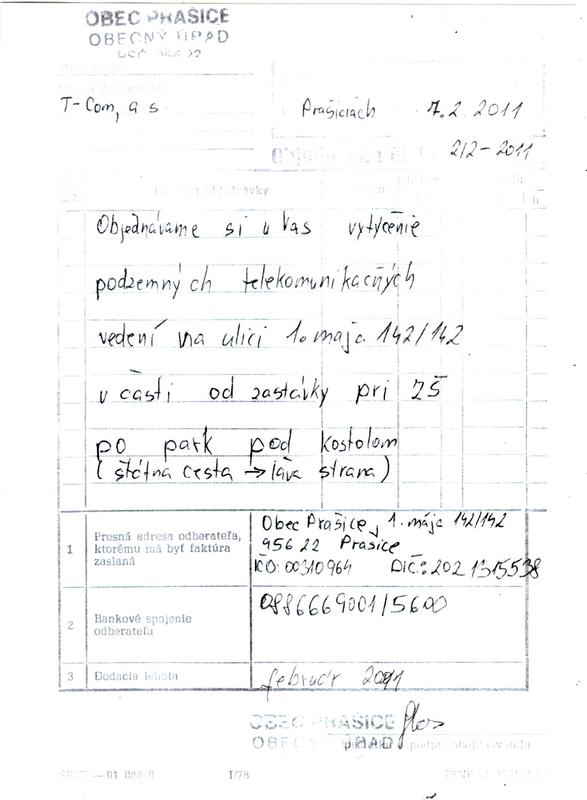 OBEC PRAŠICE
OBECNÝ ÚRAD
T-Com, a s
Prašiciach 7. 2. 2011
212-2011
Objednávame si u Vas vytýčenie
podzemných telekomunikačných
vedení na ulici 1. mája 142/142
v časti od zastávky pri ZŠ
po park pod kostolom
(štátna cesta → ľavá strana)
1 Presná adresa odberateľa, ktorému má byť faktúra zaslaná
Obec Prašice, 1. mája 142/142
956 22 Prašice
IČO: 00310964 DIČ: 2021315538
2 Bankové spojenie odberateľa
0886669001/5600
3 Dodacia lehota február 2011
OBEC PRAŠICE
OBECNÝ ÚRAD
I/78